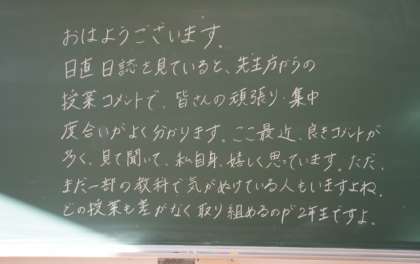 おはようございます。
日直日誌を見ていると、先生方からの
授業コメントで、皆さんの頑張り・集中
度合いがよく分かります。ここ最近、良きコメントが
多く、見て聞いて、私自身、嬉しく思っています。ただ、
まだ一部の教科で気がぬけている人もいますよね。
どの授業も差がなく取り組めるのが2年生ですよ。